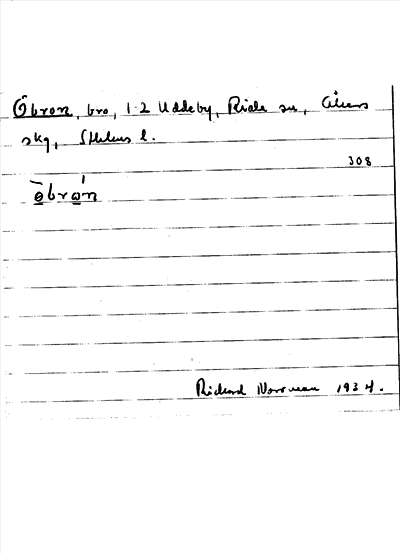 Öbron, bro, 1-2 Uddeby, Riala sn, Åkers
skg, Sthlms l.
308
ō̲brώ̲n
Richard Norrman 1934.